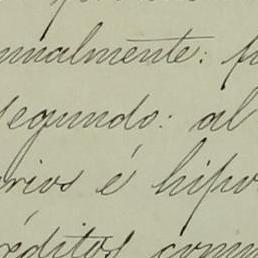 nualmente: p
segundo: al
arios é hipo
réditos comu